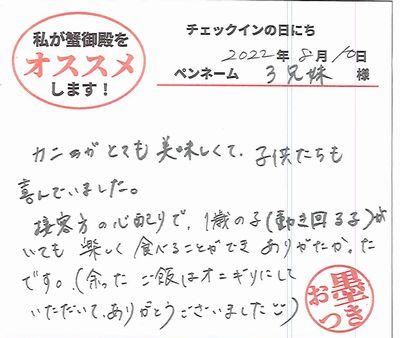 私が蟹御殿を
オススメ
します！
チェックインの日にち
2022年 8月 10日
ペンネーム 3兄妹 様
カニのがとても美味しくて、子供たちも
喜んでいました。
接客方の心配りで、1歳の子(動き回る子)が
いても楽しく食べることができありがたかった
です。(余ったご飯はオニギリにして
いただいて、ありがとうございました)
お墨つき